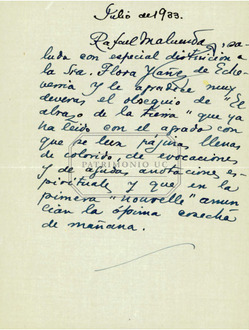 Julio de 1933.
Rafael Maluenda, sa-
luda con especial distinción a
la Sra. Flora Yañez de Eche-
verria y le agradece muy
deveras el obsequio de "El
abrazo de la tierra" que ya
ha leído con el agrado con
que se leen paginas llenas
de colorido, de evocaciones
y de agudas anotaciones es-
pirituales y que en la
primera "nouvelle" anun-
cian la óptima cosecha
de mañana.
PATRIMONIO UC